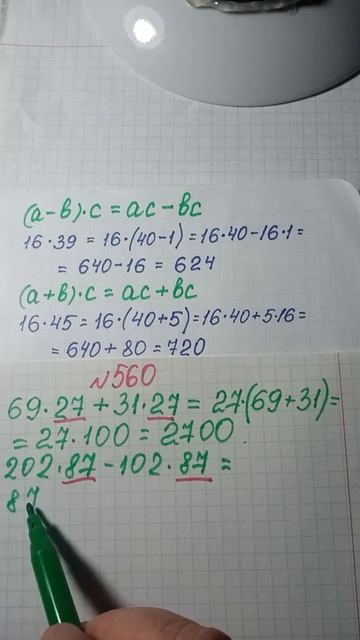 (а-в)·с = ас-вс
16·39 = 16·(40-1) = 16·40-16·1 =
= 640-16 = 624
(а+в)·с = ас+вс
16·45 = 16·(40+5) = 16·40+5·16 =
= 640+80 = 720
№560
69·27+31·27 = 27·(69+31) =
= 27·100 = 2700
202·87-102·87 =
87